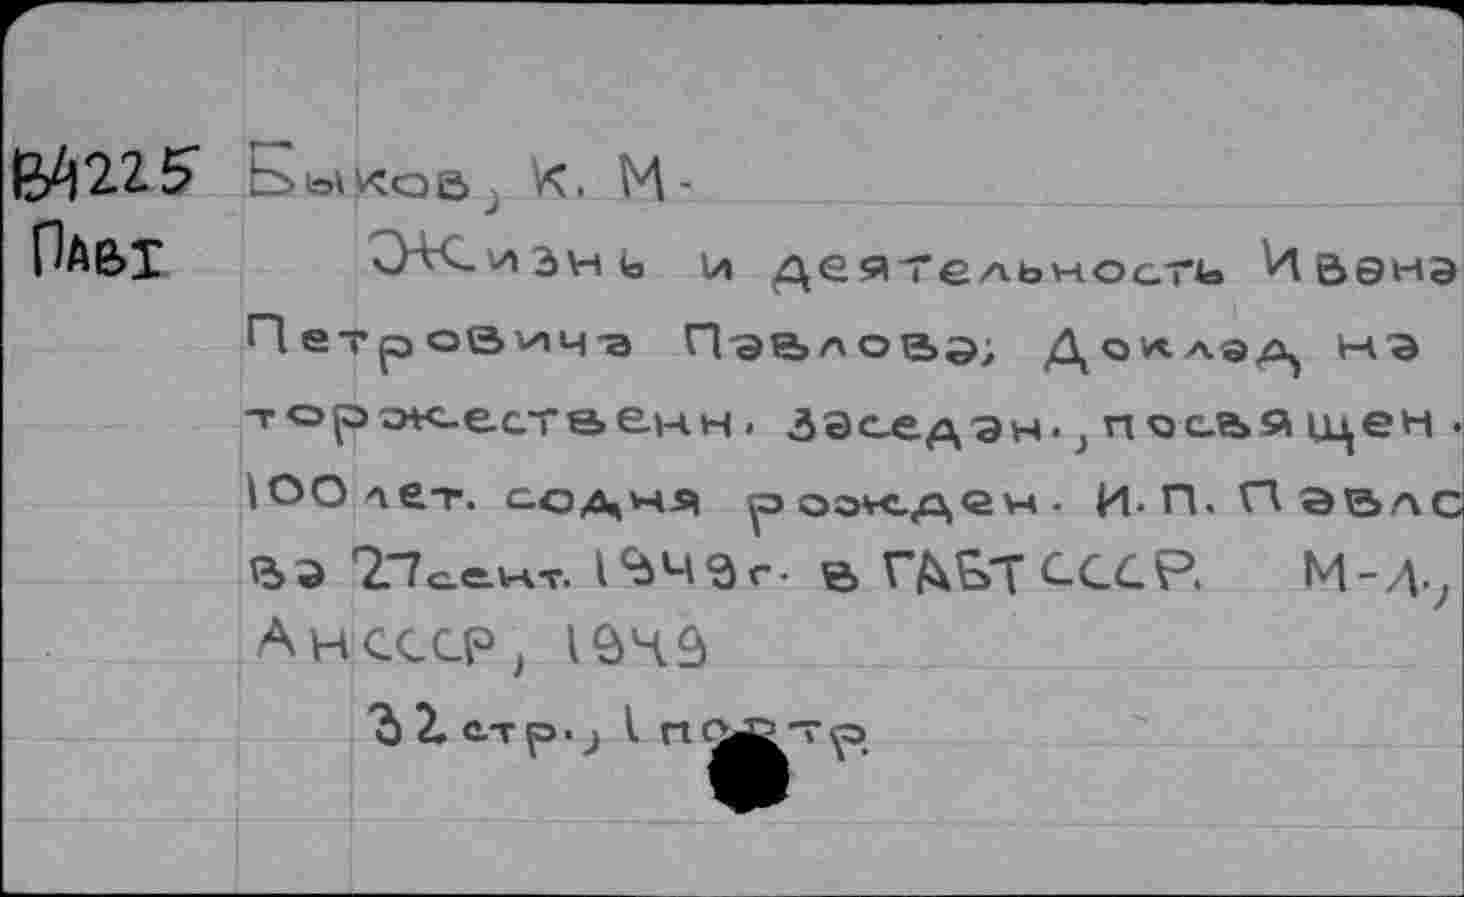 B4225 Быков, К. М.
ПАВ1 Жизнь и деятельность Ивана
Петровича Павлова; Доклад на
торжественн. Заседан., посвящен.
100 лет. со дня рожден. И. П. Павло
ва 27 сент. 1949г. в ГАБТ СССР. М-Л.,
АН СССР, 1949
32 стр., 1 портр.